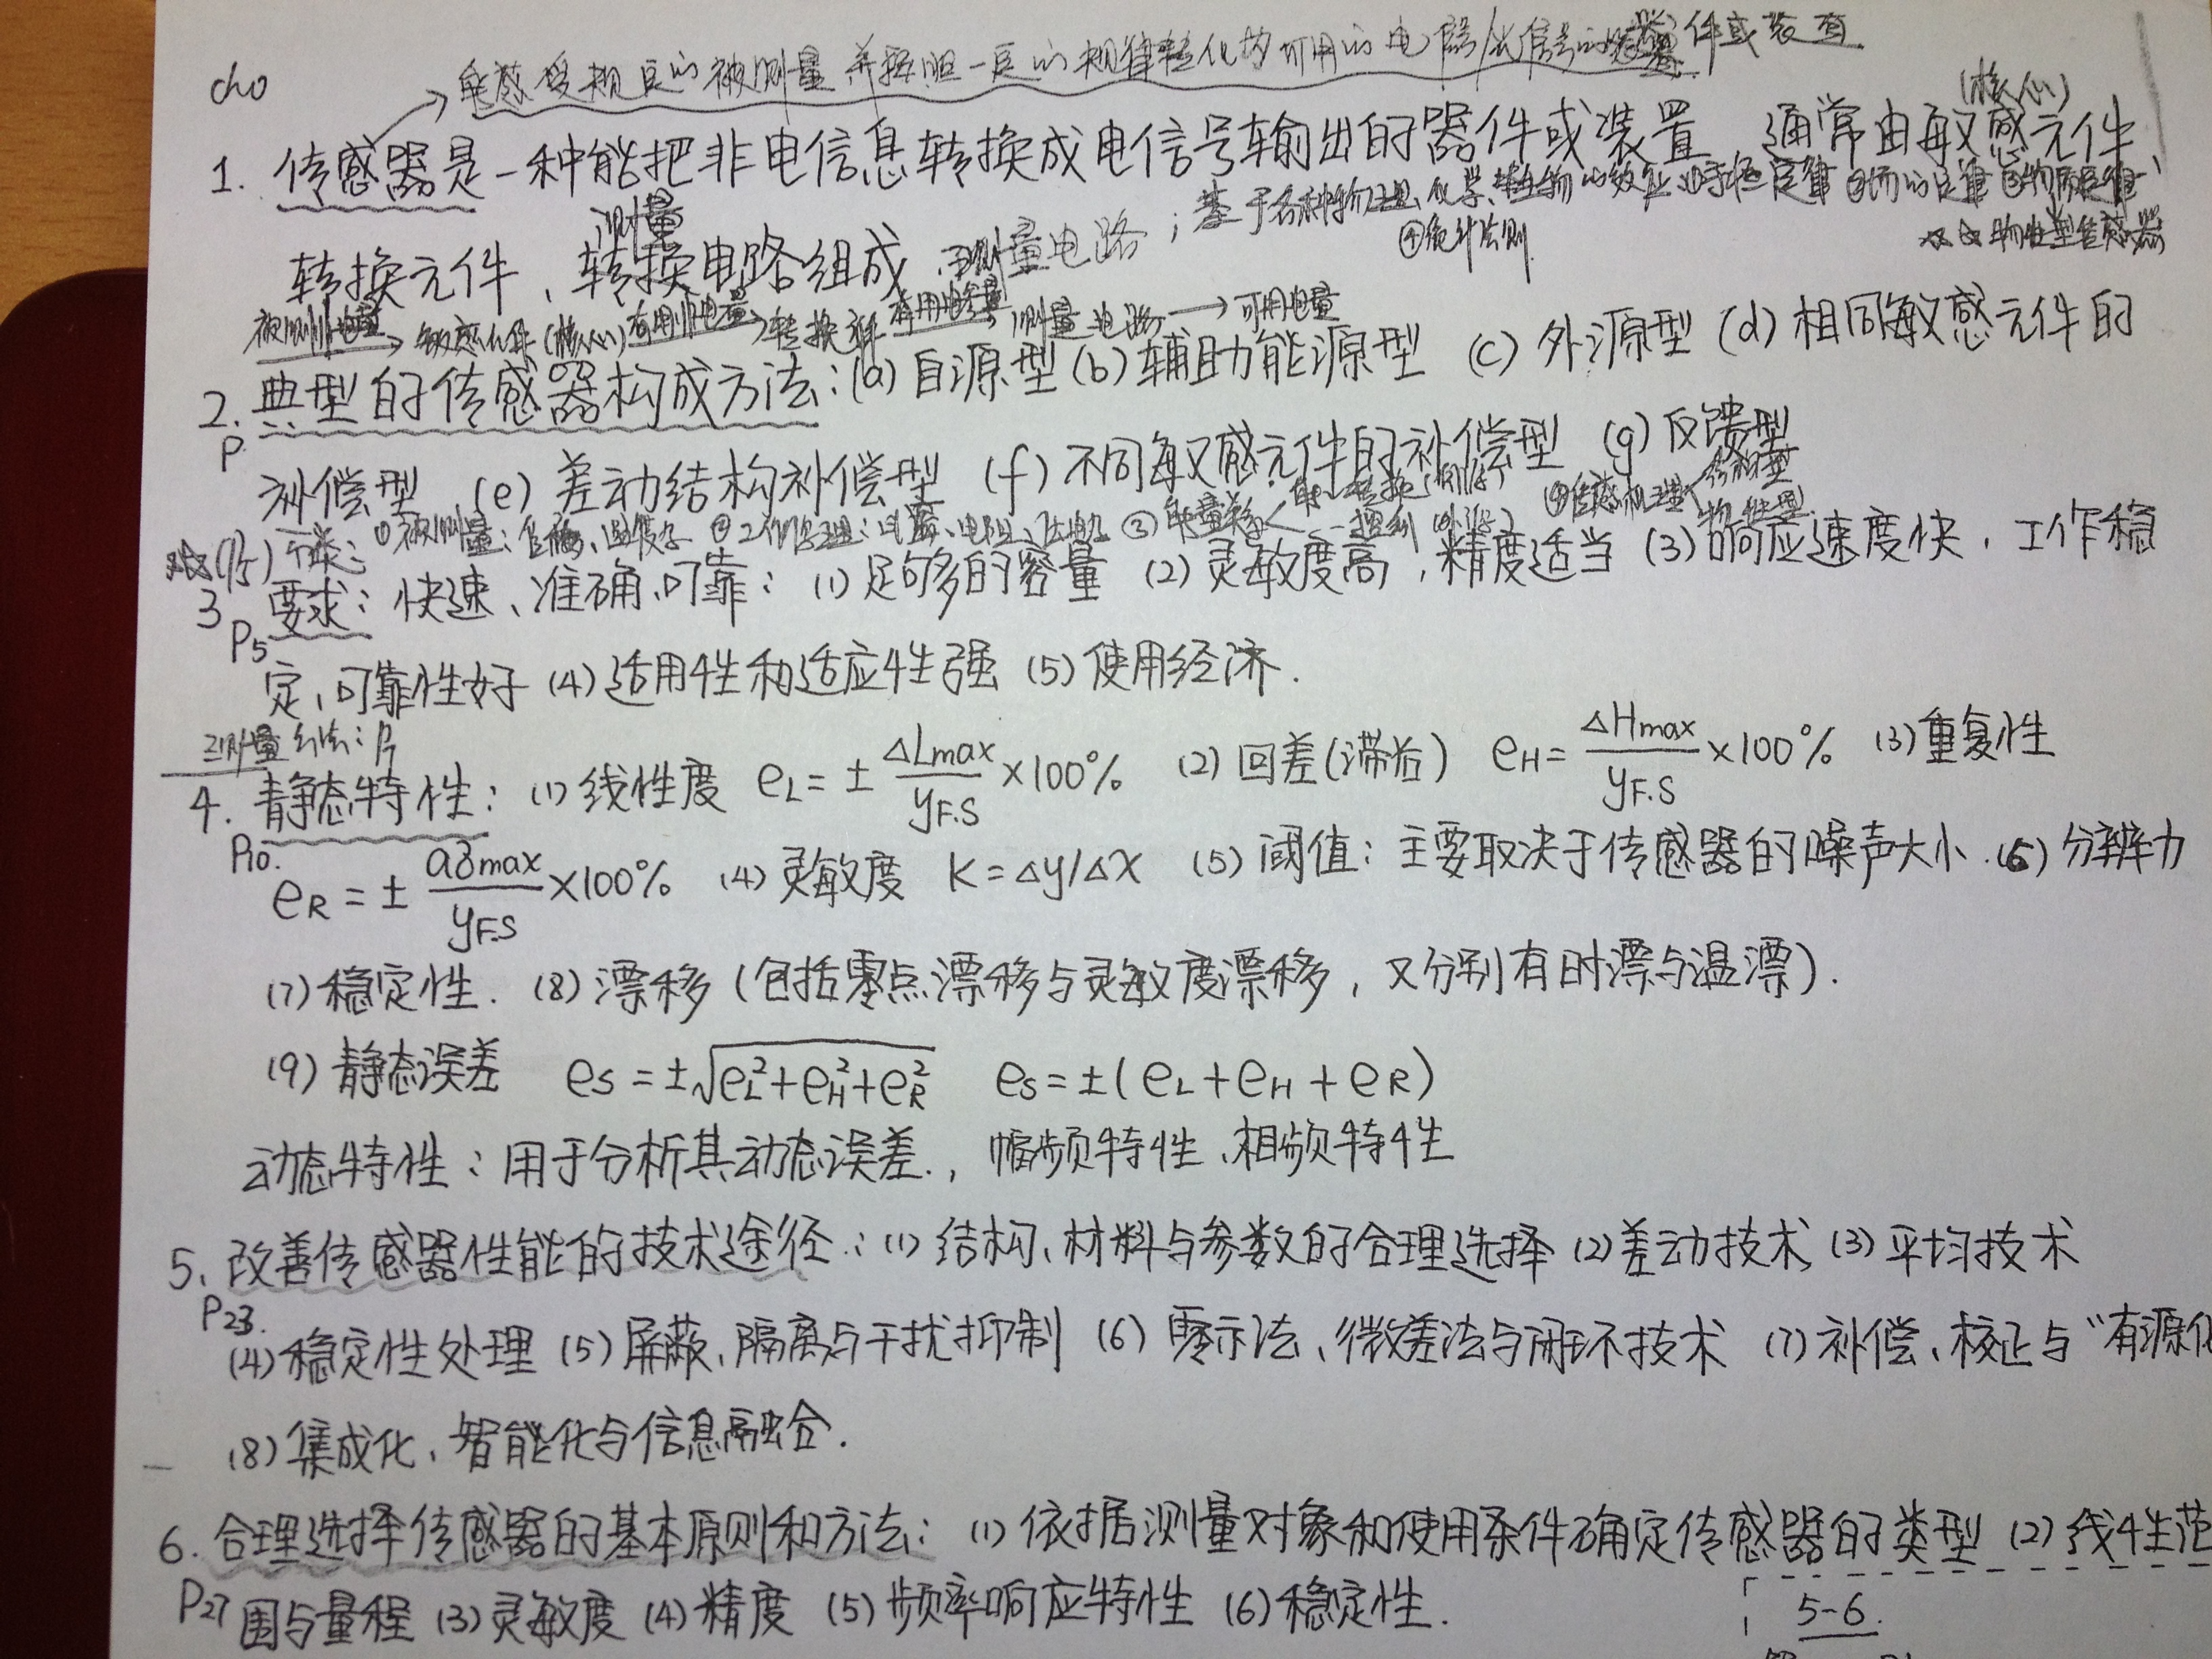 ch0
能感受规定的被测量并按照一定的规律转化为可用的电信号的器件或装置
(核心)
1. 传感器是一种能把非电信息转换成电信号输出的器件或装置 通常由敏感元件
测量
基于各种物理、化学、生物的效应 ②场的定律
转换元件、转换电路组成. 测量电路;
④统计法则
☆☆物性型传感器
被测非电量→敏感元件(核心)有用非电量→转换元件 有用电量 测量电路→可用电量
2. 典型的传感器构成方法:(a)自源型(b)辅助能源型 (c)外源型 (d)相同敏感元件的
P
补偿型 (e)差动结构补偿型 (f)不同敏感元件的补偿型 (g)反馈型
☆☆(P5)分类: ①被测量: 位移、温度 ②工作原理: 电阻、压电 ③能量 ④传感机理<结构型 物性型
3 要求: 快速、准确、可靠: (1)足够多的容量 (2)灵敏度高,精度适当 (3)响应速度快,工作稳
P5
定,可靠性好 (4)适用性和适应性强 (5)使用经济.
测量方法: P
4. 静态特性: (1)线性度 eL=± ΔLmax/yF.S ×100% (2)回差(滞后) eH= ΔHmax/yF.S ×100% (3)重复性
P10.
eR=± aδmax/yF.S ×100% (4)灵敏度 K=Δy/Δx (5)阈值: 主要取决于传感器的噪声大小.(6)分辨力
(7)稳定性. (8)漂移(包括零点漂移与灵敏度漂移,又分别有时漂与温漂).
(9)静态误差 es=±√(eL²+eH²+eR²) es=±(eL+eH+eR)
动态特性: 用于分析其动态误差., 幅频特性、相频特性
5. 改善传感器性能的技术途径.: (1)结构、材料与参数的合理选择 (2)差动技术 (3)平均技术
P23.
(4)稳定性处理 (5)屏蔽、隔离与干扰抑制 (6)零示法、微差法与闭环技术 (7)补偿、校正与"有源化
(8)集成化、智能化与信息融合.
6. 合理选择传感器的基本原则和方法: (1)依据测量对象和使用条件确定传感器的类型 (2)线性范
P27 围与量程 (3)灵敏度 (4)精度 (5)频率响应特性 (6)稳定性.
5-6.